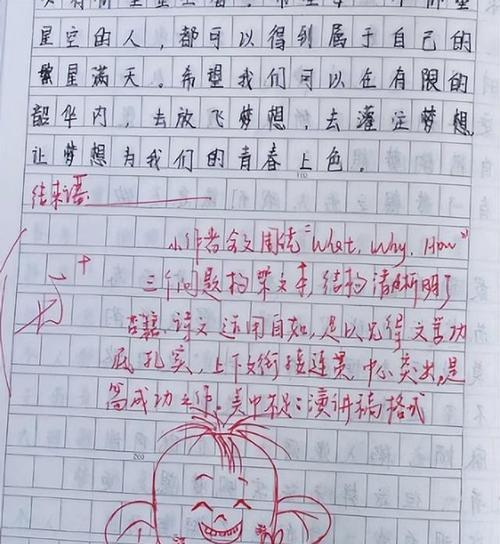 星空的人，都可以得到属于自己的
繁星满天。希望我们可以在有限的
韶华内，去放飞梦想，去灌注梦想，
让梦想为我们的青春上色。
结束语
小作者全文围绕"What, Why, How"
三个问题构架文章，结构清晰明了
诗文运用自如，足以见得文学功
底扎实，上下文衔接连贯，中心突出，是
篇成功之作。美中不足：演讲稿格式